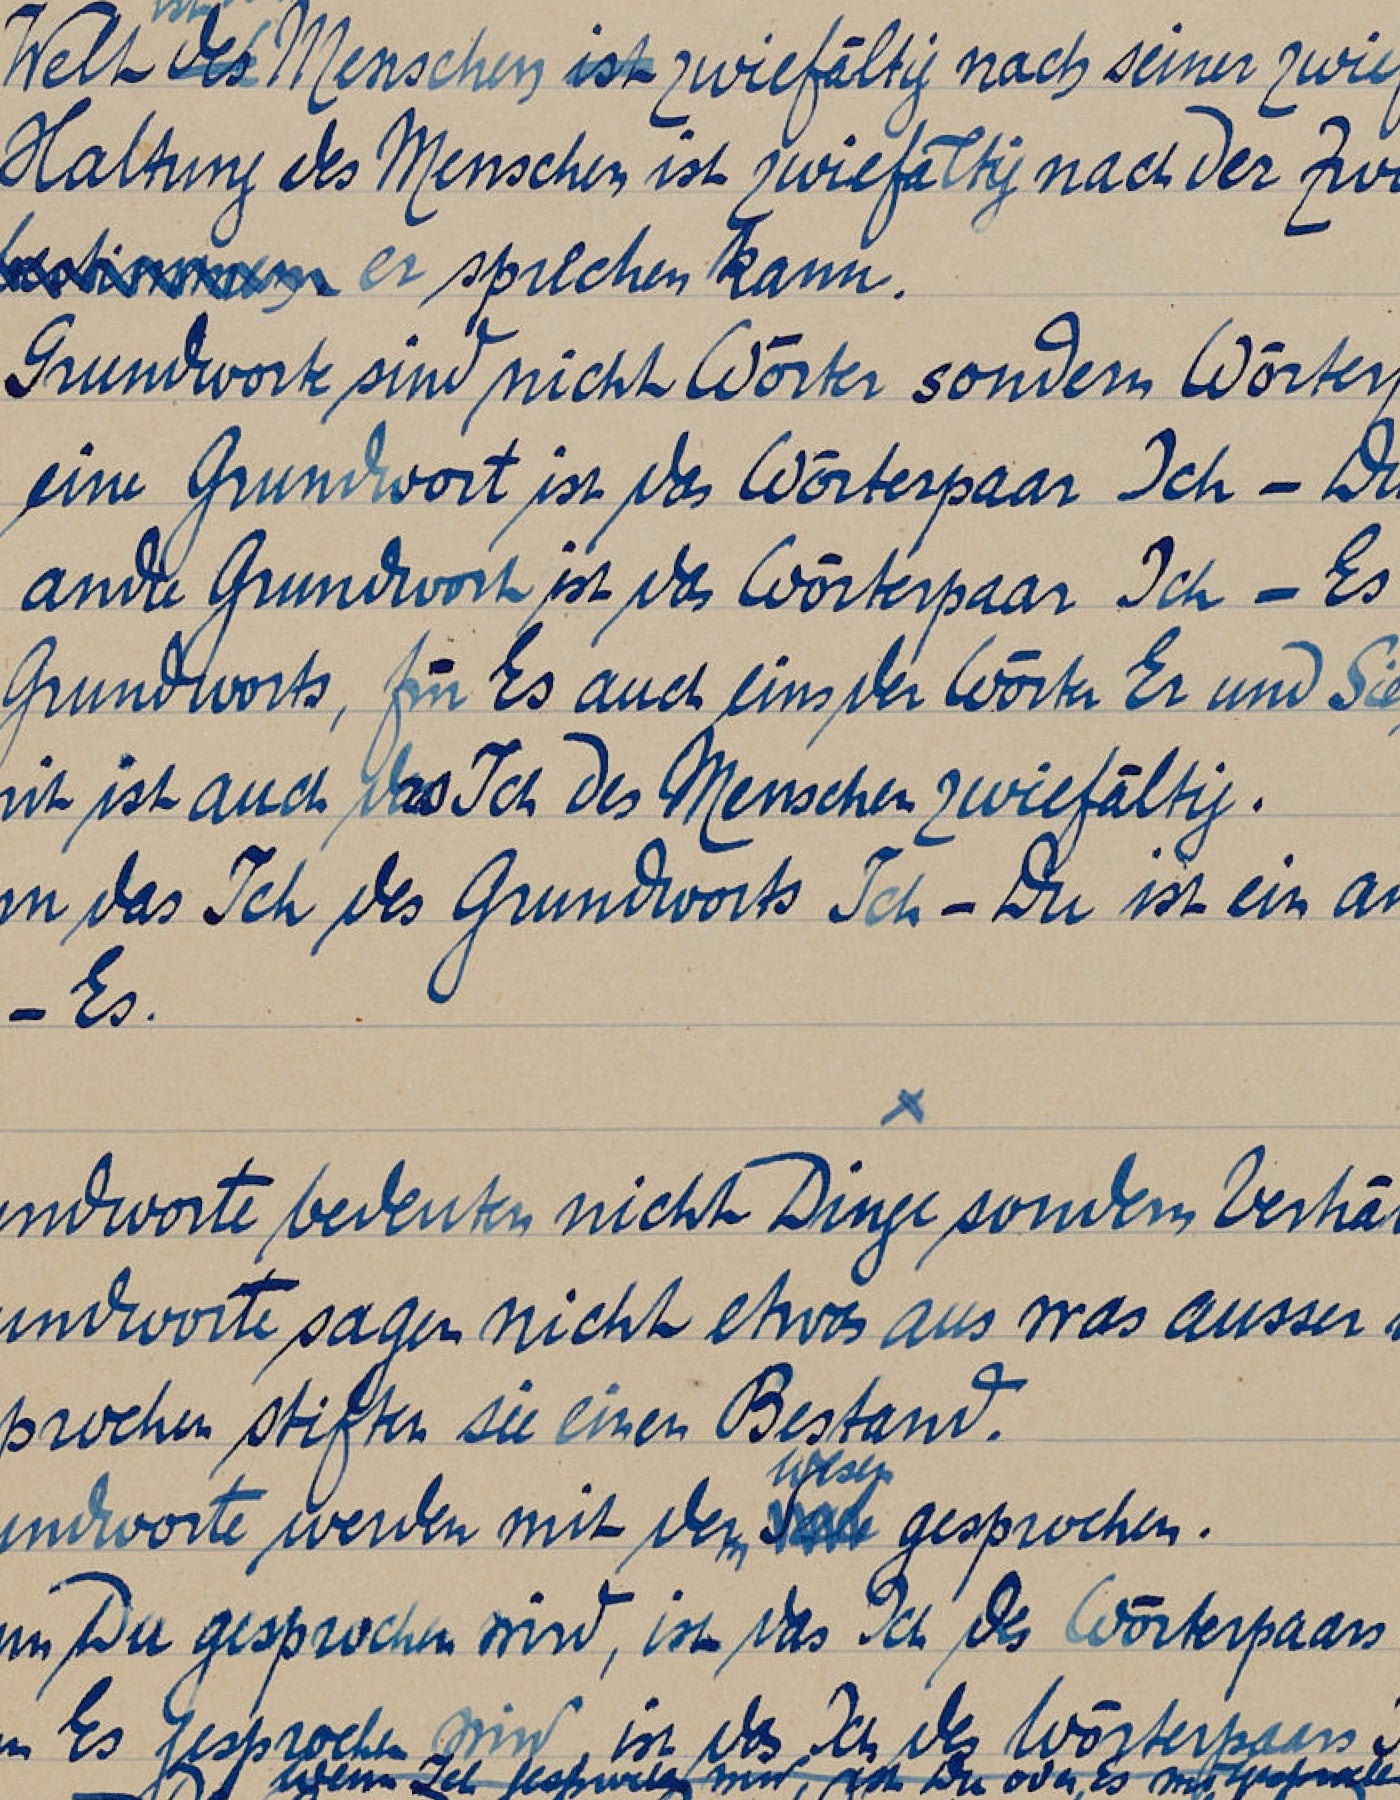 ist
Welt des Menschen ist zwiefältig nach seiner zwief
Haltung des Menschen ist zwiefältig nach der Zwi
bestimmen er sprechen kann.
Grundworte sind nicht Wörter sondern Wörterp
eine Grundwort ist das Wörterpaar Ich – Du
andre Grundwort ist das Wörterpaar Ich – Es
Grundworts, für Es auch eins der Wörter Er und Sie
mit ist auch das Ich des Menschen zwiefältig.
nn das Ich des Grundworts Ich – Du ist ein an
– Es.
x
undworte bedeuten nicht Dinge sondern Verhäl
undworte sagen nicht etwas aus was ausser
prochen stiften sie einen Bestand.
Wesen
undworte werden mit dem gesprochen.
nn Du gesprochen wird, ist das Ich des Wörterpaars
nn Es gesprochen wird, ist das Ich des Wörterpaars I
wenn Ich gesprochen wird, ist Du oder Es mitgesprochen